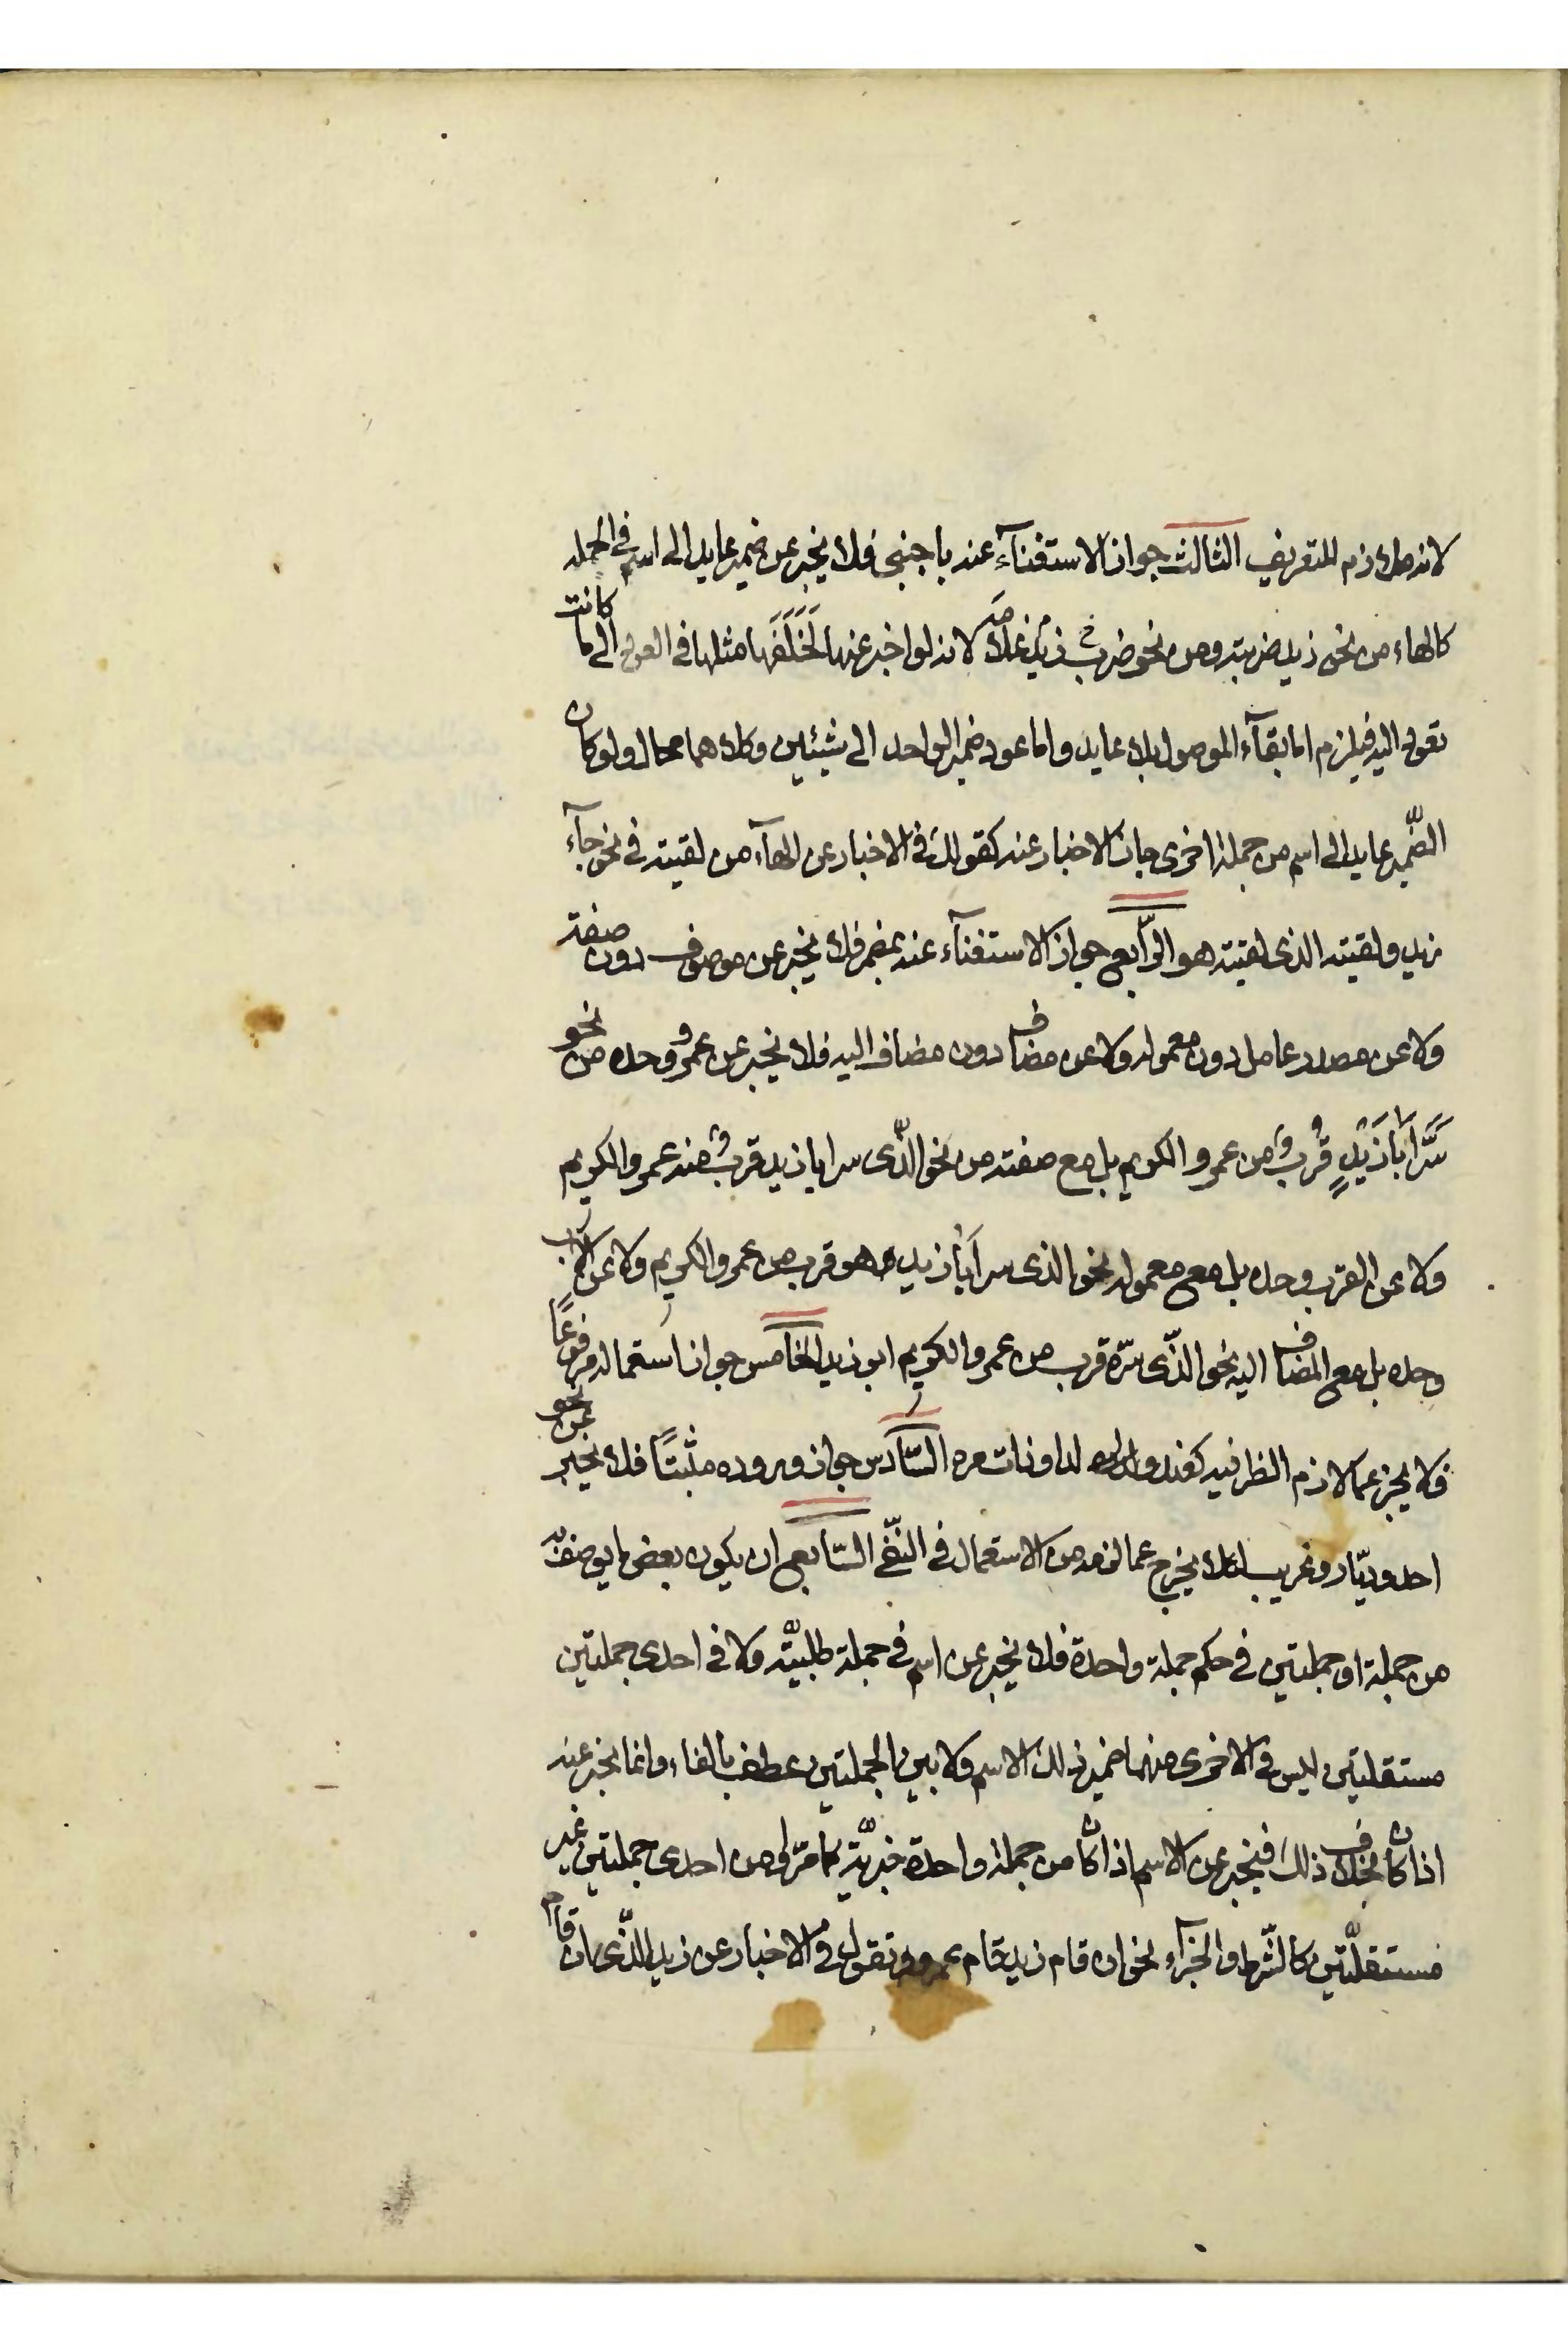 لانه ملازم للتعريف الثالث جواز الاستغنآء عنه باجنبى فلا يخبر عن ضمير عايد الى اسم فى الجملة
كالهاء من نحو زيد ضربته ومن نحو ضرب زيد غلامه لانه لو اخبر عنها لَخَلَفَها مثلها فى العود الى ما كانت
تعود اليه فيلزم اما بقآء الموصول بلا عايد واما عود ضمير الواحد الى شيئين وكلاهما محال ولو كان
الضّمير عايدا الى اسم من جملة اخرى جاز الاخبار عنه كقولك فى الاخبار عن الهآء من لقيته فى نحو جآء
زيد ولقيته الذى لقيته هو الرّابع جواز الاستغنآء عنه بمضمر فلا يخبر عن موصوف دون صفته
ولا عن مصدر عامل دون معموله ولا عن مضاف دون مضاف اليه فلا يخبر عن عمرو وحده من نحو
سَرَّ اَبَا زَيْدٍ قُرب من عمرو الكريم بل مع صفته من نحو الذّى سر ابا زيد قرب منه عمرو الكريم
ولا عن القرب وحده بل مع معموله نحو الذى سر اَبَا زيد هو قرب من عمرو الكريم ولا عن الاب
وحده بل مع المضاف اليه نحو الذّى سرّه قرب من عمرو الكريم ابو زيد الخامس جواز استعماله مرفوعًا
فلا يخبر عما لازم الظرفيه كعند ولدى وذات مره السّادس جواز وروده مثبتًا فلا يخبر عن نحو
احد وديّار وعريب لئلا يخرج عما لزمه من الاستعمال فى النّفى السّابع ان يكون بعض ما يوصف به
من جملة او جملتين فى حكم جملة واحدة فلا يخبر عن اسم فى جملة طلبيّة ولا فى احدى جملتين
مستقلتين ليس فى الاخرى منهما ضمير ذلك الاسم ولا بين الجملتين عطف بالفاء وانما يخبر عنه
اذا كان بخلاف ذلك فيخبر عن الاسم اذا كان من جملة واحدة خبريّة كما مرّ او من احدى جملتين غير
مستقلّتين كالشّرط والجزآء نحو ان قام زيد قام عمرو وتقول فى الاخبار عن زيد الذّى ان قام